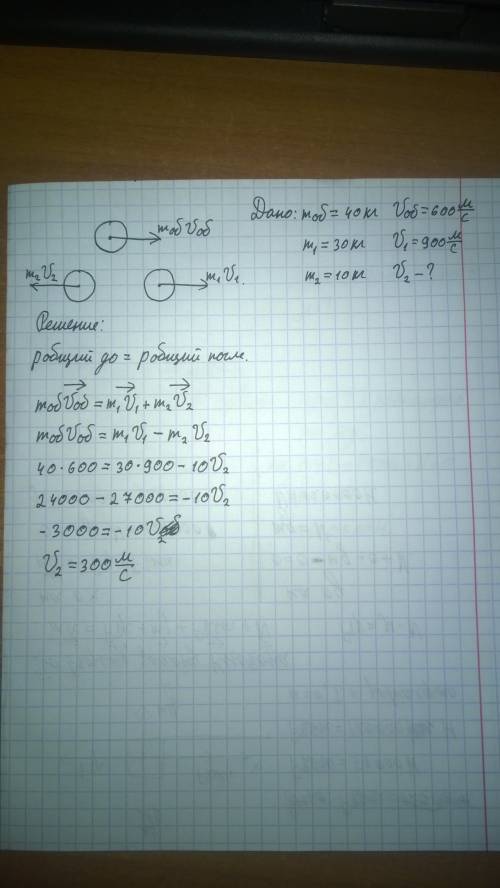 Дано: mоб = 40 кг Vоб = 600 м/с
m₁ = 30 кг V₁ = 900 м/с
m₂ = 10 кг V₂ - ?
mоб Vоб
m₂V₂
m₁V₁.
Решение:
pобщий до = pобщий посл.
mобV⃗об = m₁V⃗₁ + m₂V⃗₂
mобVоб = m₁V₁ - m₂V₂
40·600 = 30·900 - 10V₂
24000 - 27000 = -10V₂
-3000 = -10V₂
V₂ = 300 м/с